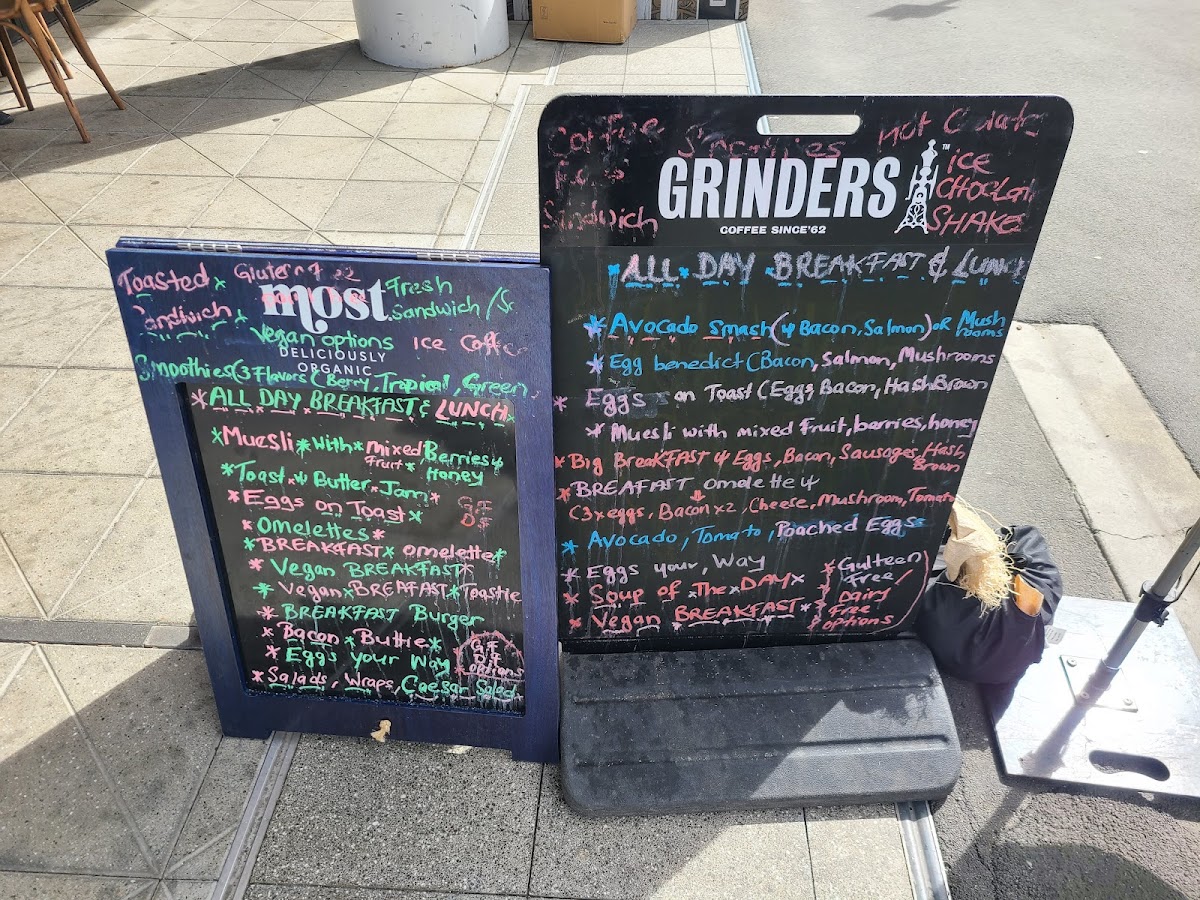 Toasted Gluten
Sandwich
most
Fresh
Sandwich
Vegan options
ICE Coffee
DELICIOUSLY
ORGANIC
Smoothies (3 Flavors (Berry, Tropical, Green
*ALL DAY BREAKFAST & LUNCH
*Muesli * with * mixed Fruit * Berries & Honey
*Toast & Butter * Jam*
*Eggs on Toast*
G.F
D.F
*Omelettes*
*BREAKFAST * omelette*
*Vegan BREAKFAST*
*Vegan * BREAFAST * Toastie
*BREAKFAST Burger
*Bacon * Buttie*
*Eggs your Way
G.F
D.F
options
*Salads, Wraps, Caesar Salad
Coffee Smoothies Hot
Sandwich
GRINDERS™
COFFEE SINCE '62
ICE
CHOCLAT
SHAKE
*ALL DAY BREAKFAST & LUNCH
*Avocado smash (& Bacon, Salmon) OR Mushrooms
*Egg benedict (Bacon, Salmon, Mushrooms
*Eggs on Toast (Eggs, Bacon, HashBrown
*Muesli with mixed Fruit, berries, honey
*Big BreaKFAST & Eggs, Bacon, Sausages, Hash Brown
*BREAFAST omelette &
(3xeggs, Baconx2, Cheese, Mushroom, Tomato
*Avocado, Tomato, Poached Eggs
*Eggs your, Way
*Soup of The DAY*
*Vegan BREAKFAST*
*Gulteen
Free/
Dairy
Free
options